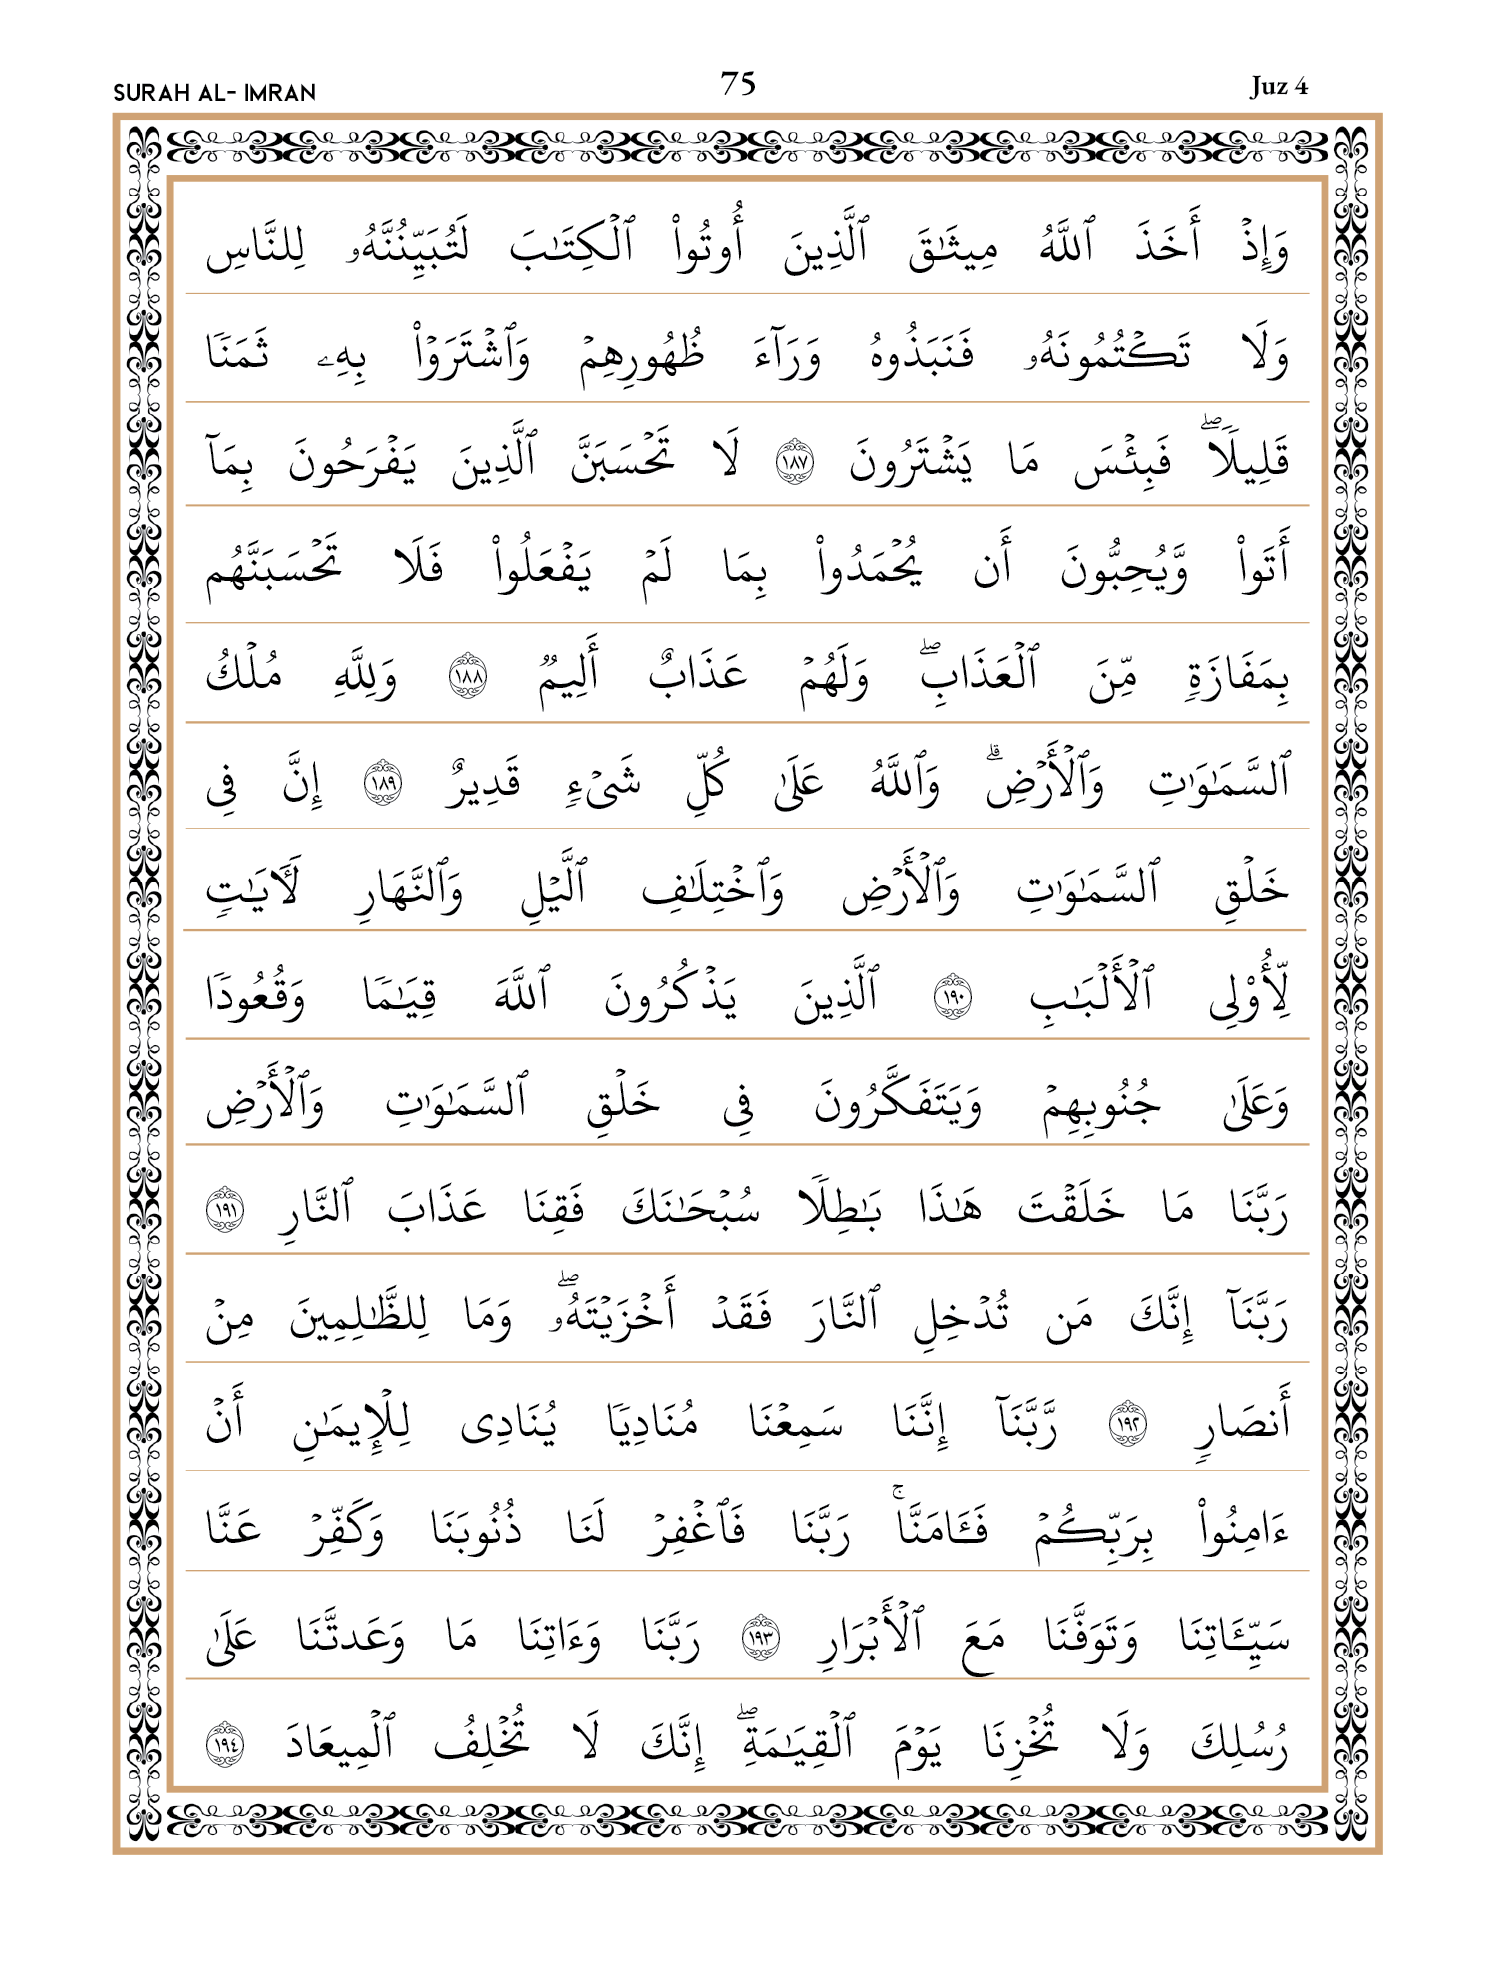 SURAH AL- IMRAN 75 Juz 4
وَإِذْ أَخَذَ ٱللَّهُ مِيثَـٰقَ ٱلَّذِينَ أُوتُوا۟ ٱلْكِتَـٰبَ لَتُبَيِّنُنَّهُۥ لِلنَّاسِ
وَلَا تَكْتُمُونَهُۥ فَنَبَذُوهُ وَرَآءَ ظُهُورِهِمْ وَٱشْتَرَوْا۟ بِهِۦ ثَمَنًا
قَلِيلًا ۖ فَبِئْسَ مَا يَشْتَرُونَ ١٨٧ لَا تَحْسَبَنَّ ٱلَّذِينَ يَفْرَحُونَ بِمَآ
أَتَوا۟ وَّيُحِبُّونَ أَن يُحْمَدُوا۟ بِمَا لَمْ يَفْعَلُوا۟ فَلَا تَحْسَبَنَّهُم
بِمَفَازَةٍ مِّنَ ٱلْعَذَابِ ۖ وَلَهُمْ عَذَابٌ أَلِيمٌ ١٨٨ وَلِلَّهِ مُلْكُ
ٱلسَّمَـٰوَٰتِ وَٱلْأَرْضِ ۗ وَٱللَّهُ عَلَىٰ كُلِّ شَىْءٍ قَدِيرٌ ١٨٩ إِنَّ فِى
خَلْقِ ٱلسَّمَـٰوَٰتِ وَٱلْأَرْضِ وَٱخْتِلَـٰفِ ٱلَّيْلِ وَٱلنَّهَارِ لَـَٔايَـٰتٍ
لِّأُو۟لِى ٱلْأَلْبَـٰبِ ١٩٠ ٱلَّذِينَ يَذْكُرُونَ ٱللَّهَ قِيَـٰمًا وَقُعُودًا
وَعَلَىٰ جُنُوبِهِمْ وَيَتَفَكَّرُونَ فِى خَلْقِ ٱلسَّمَـٰوَٰتِ وَٱلْأَرْضِ
رَبَّنَا مَا خَلَقْتَ هَـٰذَا بَـٰطِلًا سُبْحَـٰنَكَ فَقِنَا عَذَابَ ٱلنَّارِ ١٩١
رَبَّنَآ إِنَّكَ مَن تُدْخِلِ ٱلنَّارَ فَقَدْ أَخْزَيْتَهُۥ ۖ وَمَا لِلظَّـٰلِمِينَ مِنْ
أَنصَارٍ ١٩٢ رَّبَّنَآ إِنَّنَا سَمِعْنَا مُنَادِيًا يُنَادِى لِلْإِيمَـٰنِ أَنْ
ءَامِنُوا۟ بِرَبِّكُمْ فَـَٔامَنَّا ۚ رَبَّنَا فَٱغْفِرْ لَنَا ذُنُوبَنَا وَكَفِّرْ عَنَّا
سَيِّـَٔاتِنَا وَتَوَفَّنَا مَعَ ٱلْأَبْرَارِ ١٩٣ رَبَّنَا وَءَاتِنَا مَا وَعَدتَّنَا عَلَىٰ
رُسُلِكَ وَلَا تُخْزِنَا يَوْمَ ٱلْقِيَـٰمَةِ ۖ إِنَّكَ لَا تُخْلِفُ ٱلْمِيعَادَ ١٩٤